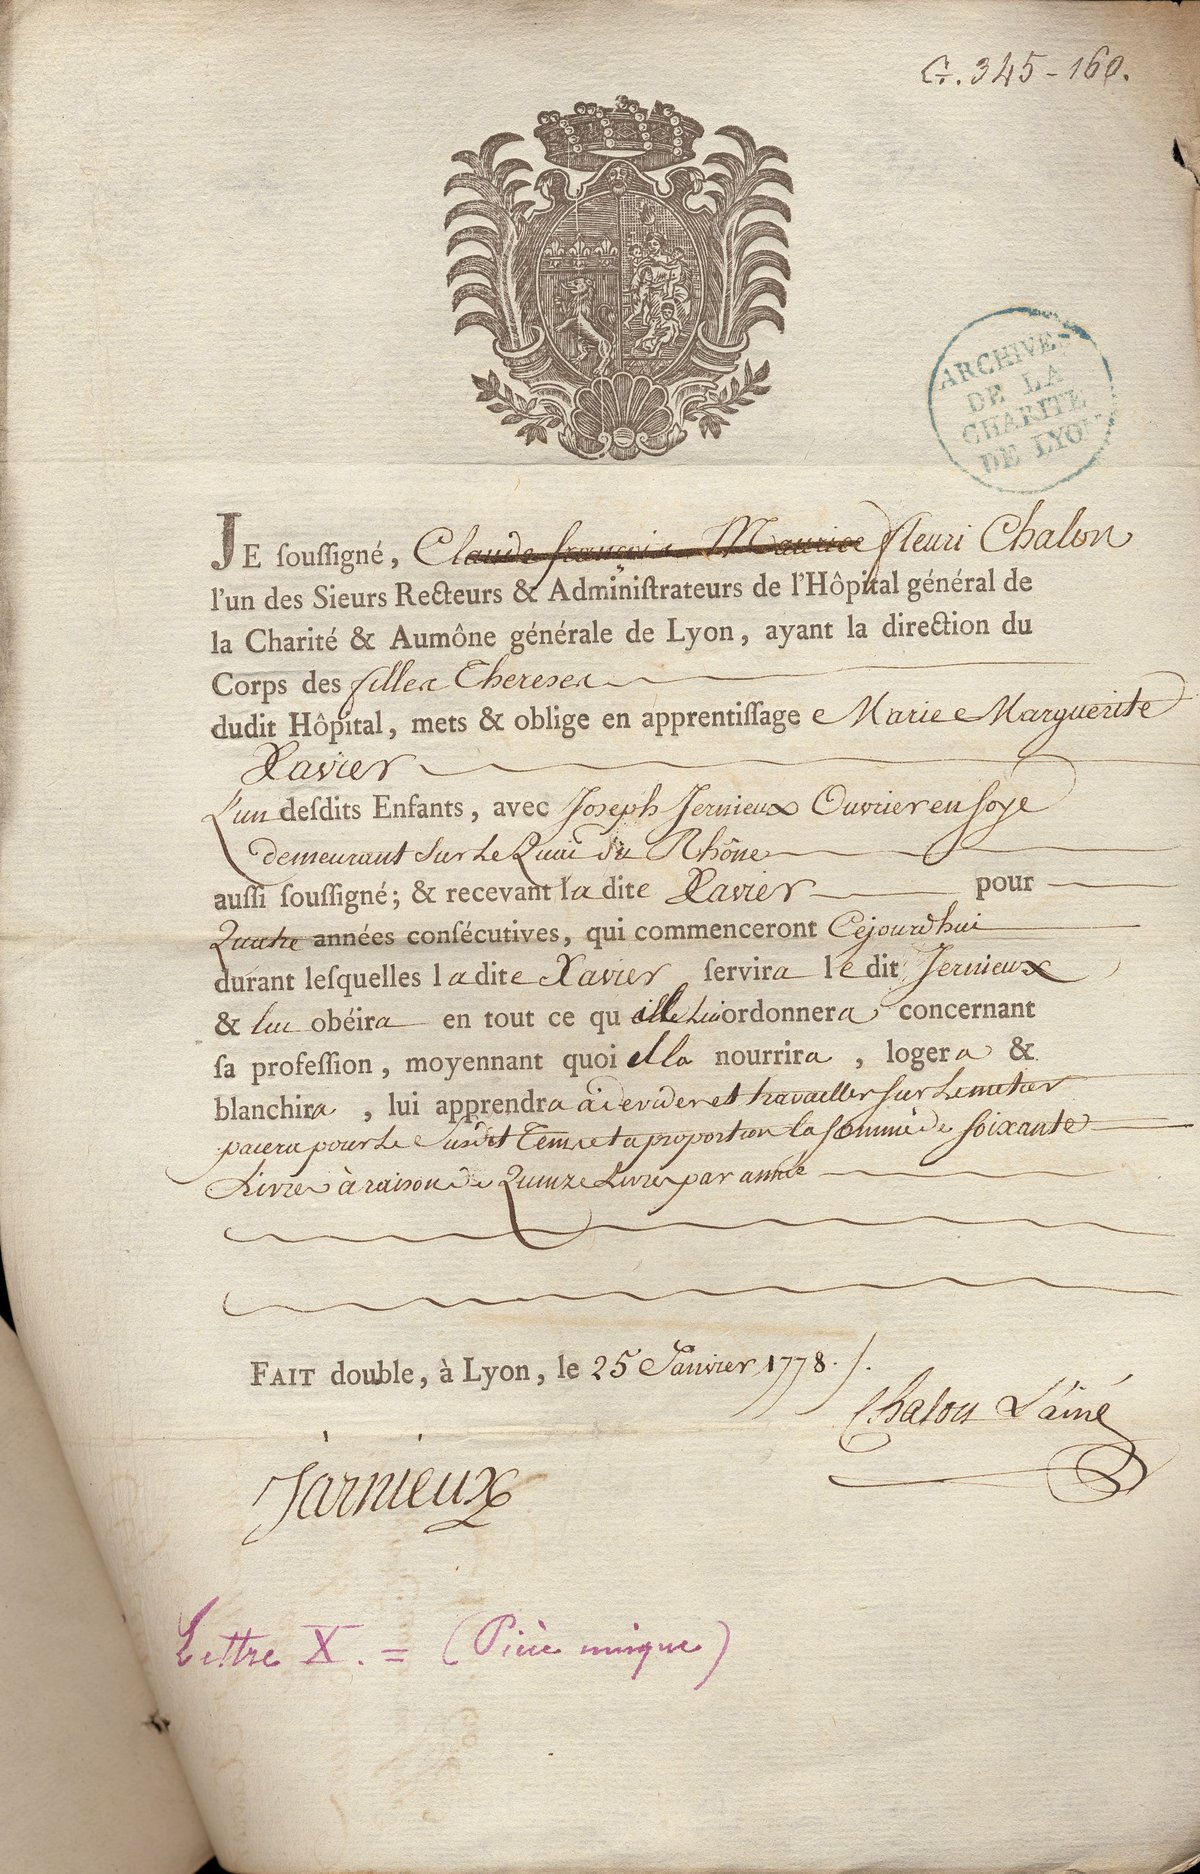 G. 345-160.
ARCHIVES
DE LA
CHARITÉ
DE LYON
JE soussigné, Claude françois Maurice fleuri Chalon
l'un des Sieurs Recteurs & Administrateurs de l'Hôpital général de
la Charité & Aumône générale de Lyon, ayant la direction du
Corps des filles Thereses
dudit Hôpital, mets & oblige en apprentissage Marie Marguerite
Xavier
L'un desdits Enfants, avec Joseph Jernieux Ouvrier en soye
demeurant sur le Quai du Rhône
aussi soussigné; & recevant la dite Xavier pour
Quatre années consécutives, qui commenceront Cejourdhui
durant lesquelles la dite Xavier servira le dit Jernieux
& lui obéira en tout ce qu'il lui ordonnera concernant
sa profession, moyennant quoi il la nourrira, logera &
blanchira, lui apprendra à devider et travailler sur le metier
paiera pour le susdit Tems et a proportion la somme de soixante
Livres à raison de Quinze Livres par année
FAIT double, à Lyon, le 25 Janvier 1778.
Chalon L'ainé
Jarnieux
Lettre X. = (Pièce unique)